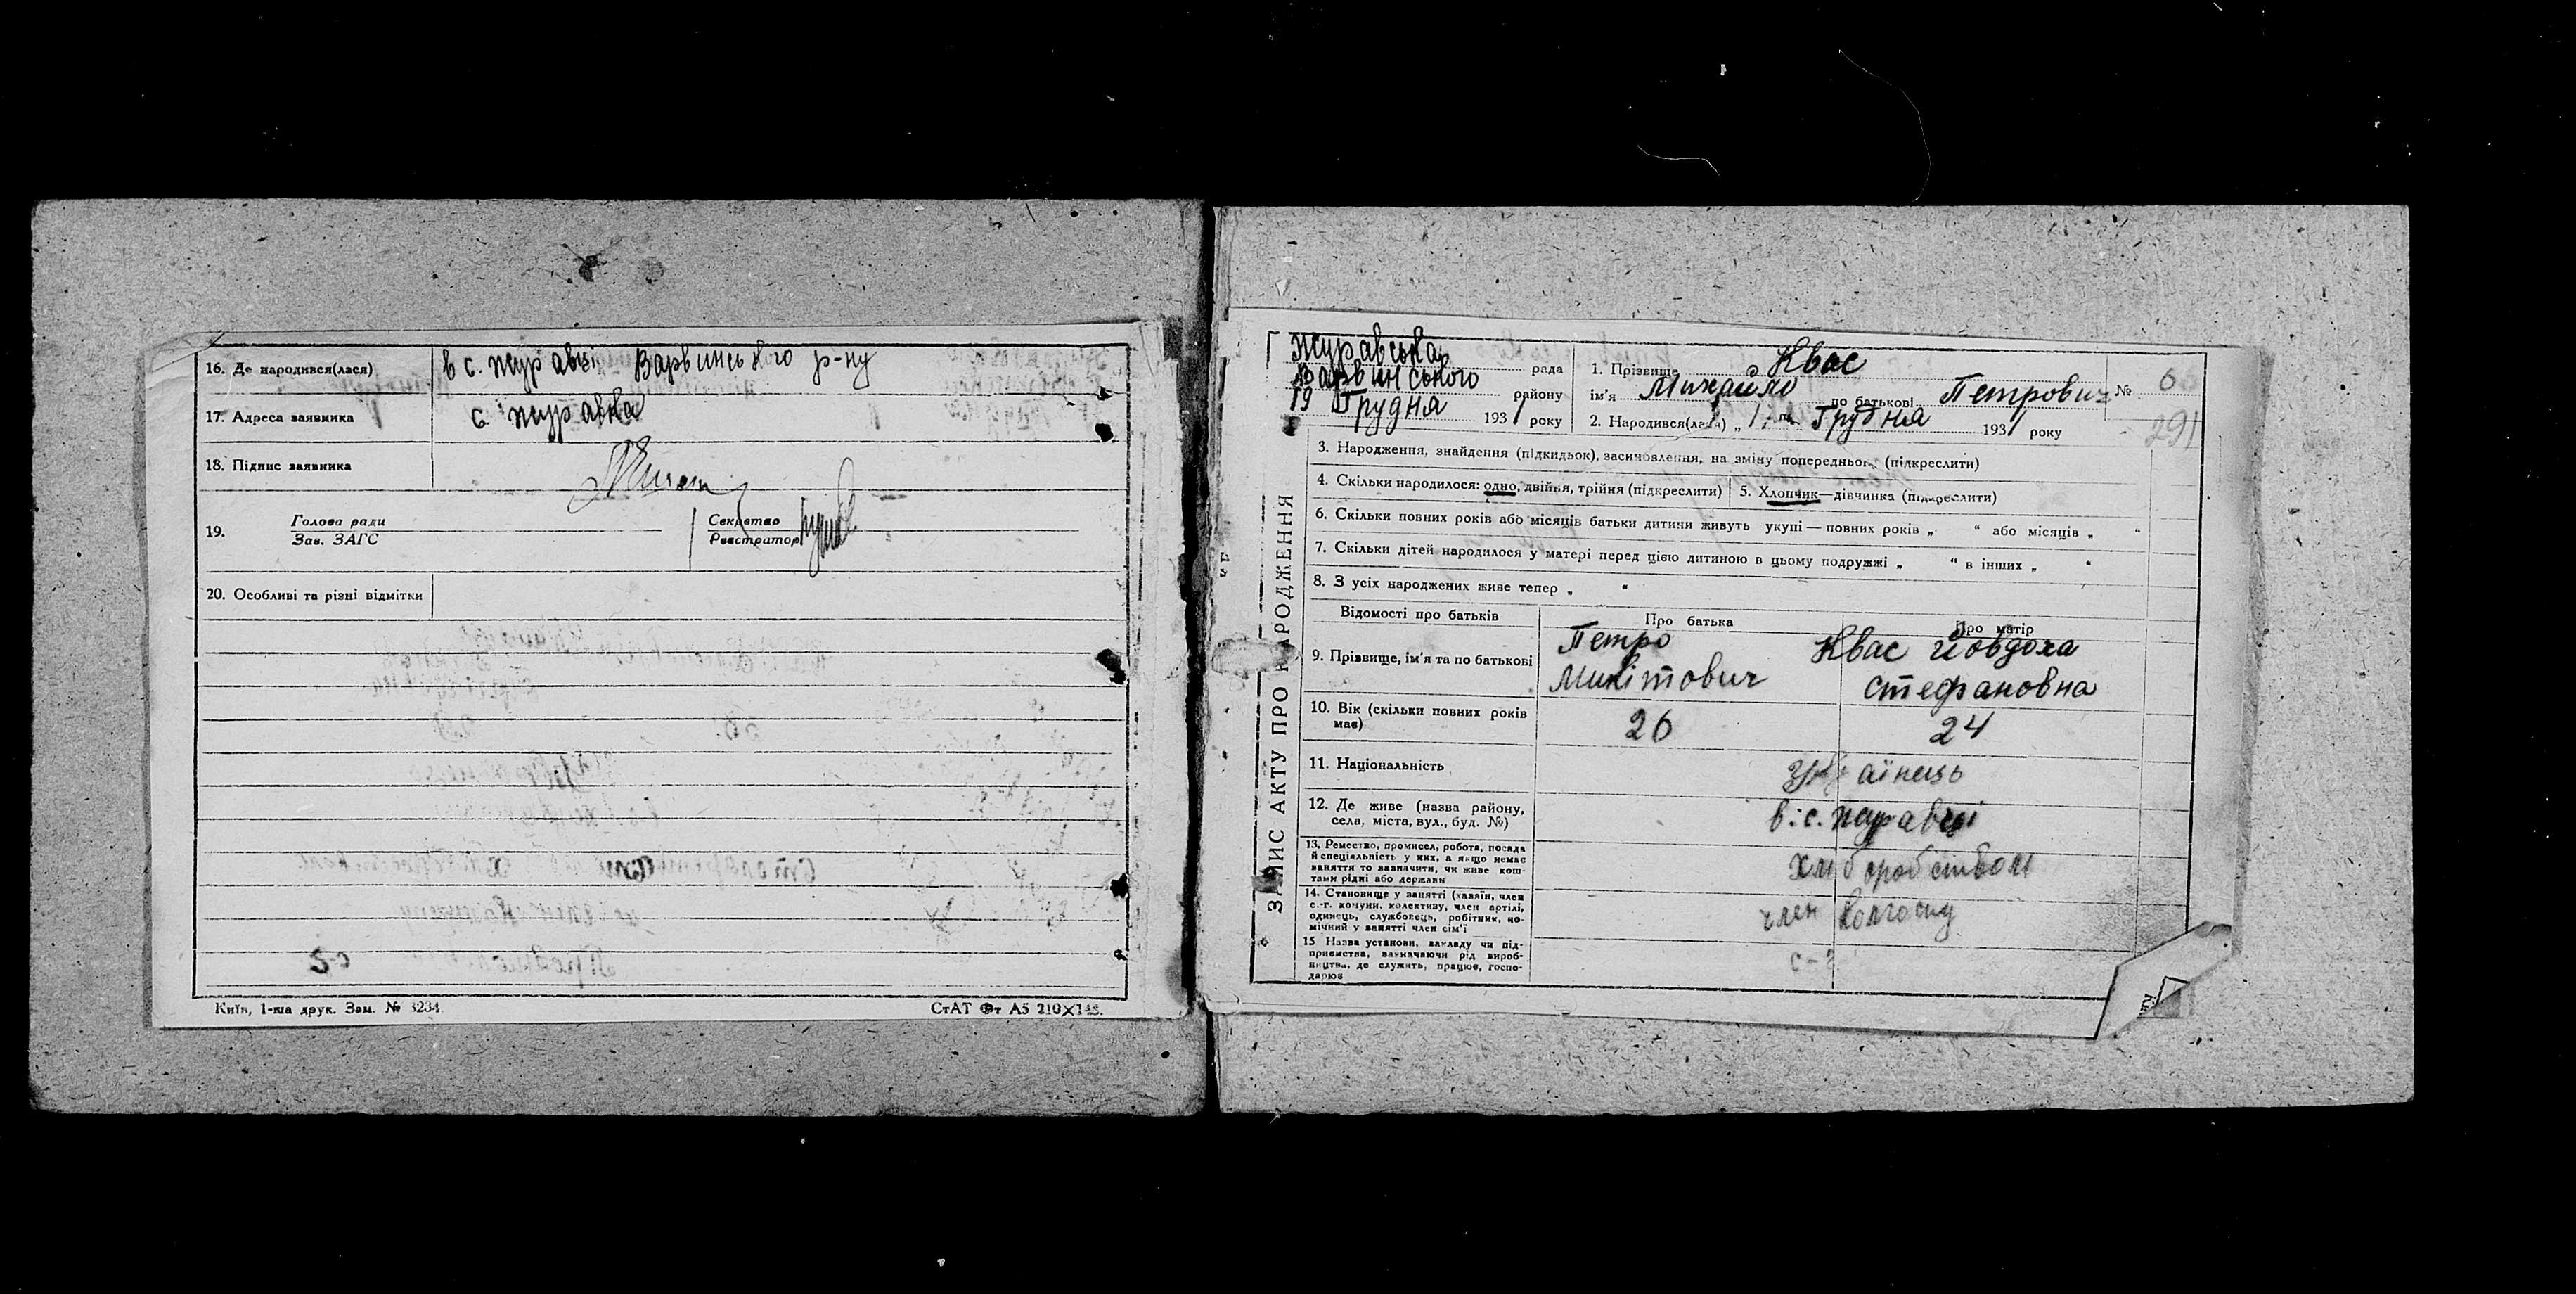 16. Де народився(лася)
в с. Журавці Варвинського р-ну
17. Адреса заявника
с. Журавка
18. Підпис заявника
19.
Голова ради
Зав. ЗАГС
Секретар
Реєстратор
20. Особливі та різні відмітки
Київ, 1-ша друк. Зам. № 3234.
СтАТ Фт А5 210×148.
ЗАПИС АКТУ ПРО НАРОДЖЕННЯ
Журавська рада
Варвинського району
19 Грудня 1931 року
1. Прізвище Квас
ім'я Михайло по батькові Петрович №
2. Народився(лася) „1" Грудня 1931 року
291
3. Народження, знайдення (підкидьок), засиновлення, на зміну попереднього (підкреслити)
4. Скільки народилося: одно, двійня, трійня (підкреслити)
5. Хлопчик—дівчинка (підкреслити)
6. Скільки повних років або місяців батьки дитини живуть укупі — повних років „ “ або місяців „ “
7. Скільки дітей народилося у матері перед цією дитиною в цьому подружжі „ “ в інших „ “
8. З усіх народжених живе тепер „ “
Відомості про батьків
Про батька
Про матір
9. Прізвище, ім'я та по батькові
Петро
Микітович
Квас Йовдоха
Стефановна
10. Вік (скільки повних років
має)
26
24
11. Національність
українець
12. Де живе (назва району,
села, міста, вул., буд. №)
в с. Журавці
13. Ремество, промисел, робота, посада
й спеціяльність у них, а якщо немає
заняття то зазначити, чи живе кош-
тами рідні або держави
хліборобством
14. Становище у занятті (хазяїн, член
с.-г. комуни, колективу, член артілі,
одинець, службовець, робітник, по-
мічний у занятті член сім'ї
член колгоспу
15 Назва установи, закладу чи під-
приємства, зазначаючи рід вироб-
ництва, де служить, працює, госпо-
дарює